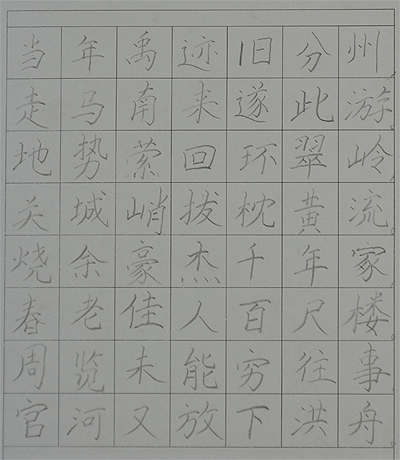 当年禹迹旧分州
走马南来遂此游
地势萦回环翠岭
关城峭拔枕黄流
烧余豪杰千年家
春老佳人百尺楼
周览未能穷往事
官河又放下洪舟